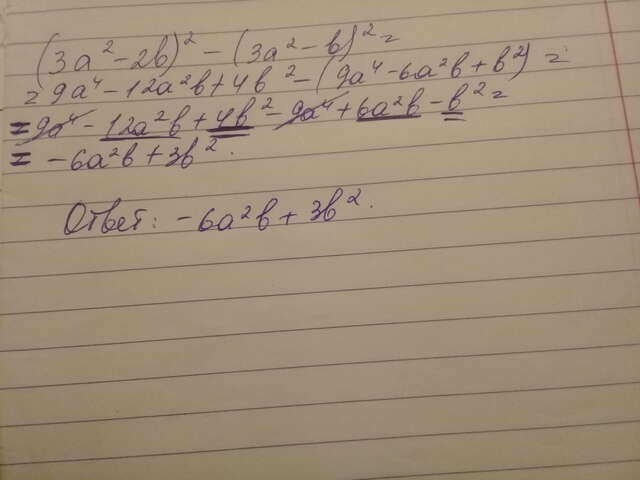 (3a² - 2b)² - (3a² - b)² =
= 9a⁴ - 12a²b + 4b² - (9a⁴ - 6a²b + b²) =
= 9a⁴ - 12a²b + 4b² - 9a⁴ + 6a²b - b² =
= -6a²b + 3b².
Ответ: -6a²b + 3b².